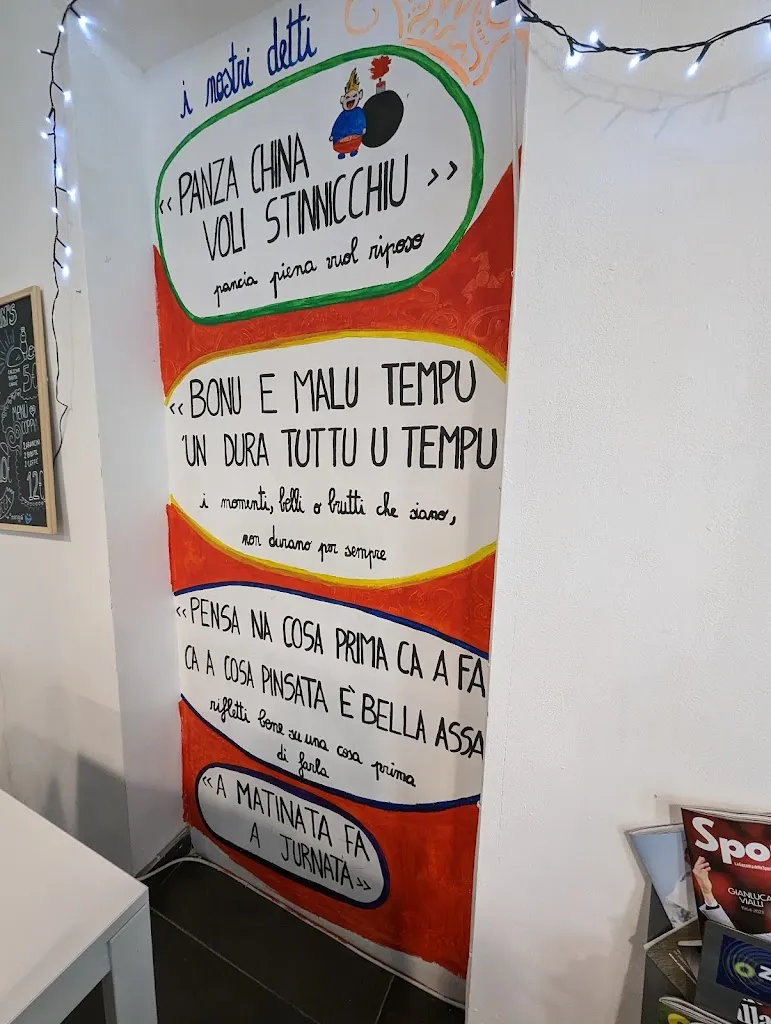 i nostri detti
<< PANZA CHINA
VOLI STINNICCHIU >>
pancia piena vuol riposo
<< BONU E MALU TEMPU
'UN DURA TUTTU U TEMPU
i momenti, belli o brutti che siano,
non durano per sempre
<< PENSA NA COSA PRIMA CA A FA
CA A COSA PINSATA È BELLA ASSA
rifletti bene su una cosa prima
di farla
<< A MATINATA FA
A JURNATA >>
MENU
COPPI
12
Spo
GIANLUCA
VIALLI